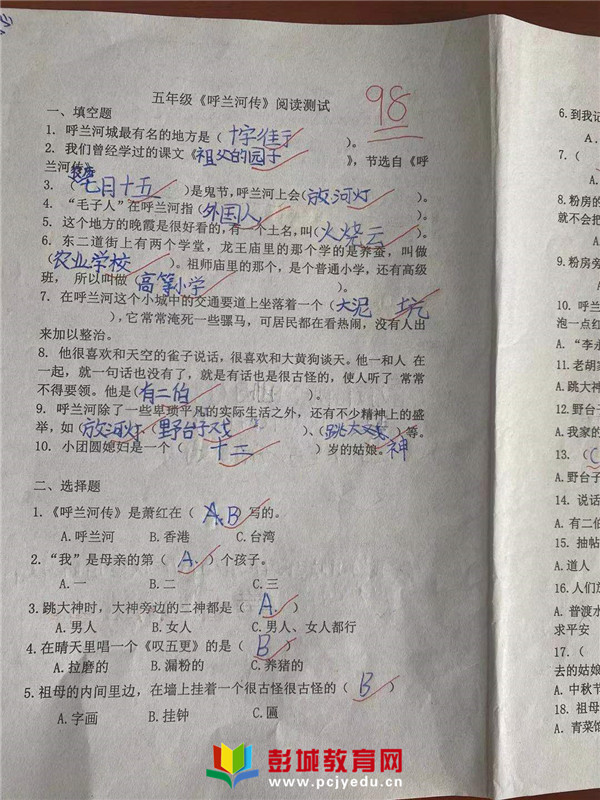 五年级《呼兰河传》阅读测试
98
一、填空题
1. 呼兰河城最有名的地方是（ 十字街 ）。
2. 我们曾经学过的课文《祖父的园子》，节选自《呼
兰河传》
3. （七月十五）是鬼节,呼兰河上会(放河灯)。
4. “毛子人”在呼兰河指(外国人)。
5. 这个地方的晚霞是很好看的,有一个土名,叫(火烧云)。
6. 东二道街上有两个学堂，龙王庙里的那个学的是养蚕，叫做
(农业学校)。祖师庙里的那个，是个普通小学，还有高级
班， 所以叫做（高等小学）。
7. 在呼兰河这个小城中的交通要道上坐落着一个（大泥 坑
），它常常淹死一些骡马，可居民都在看热闹，没有人出
来加以整治。
8. 他很喜欢和天空的雀子说话，很喜欢和大黄狗谈天。他一和人 在
一起，就一句话也没有了，就是有话也是很古怪的，使人听了 常常
不得要领。他是（有二伯）
9. 呼兰河除了一些卑琐平凡的实际生活之外，还有不少精神上的盛
举，如（放河灯）、（野台子戏）、（跳大神）等。
10. 小团圆媳妇是一个（ 十二 ）岁的姑娘。
二、选择题
1.《呼兰河传》是萧红在（ A.B ）写的。
A.呼兰河 B.香港 C.台湾
2.“我”是母亲的第（ A. ）个孩子。
A.一 B.二 C.三
3.跳大神时，大神旁边的二神都是（ A. ）
A.男人 B.女人 C.男人、女人都行
4.在晴天里唱一个《叹五更》的是（ B ）
A.拉磨的 B.漏粉的 C.养猪的
5.祖母的内间里边，在墙上挂着一个很古怪很古怪的（ B ）
A.字画 B.挂钟 C.匾
6.到我记
A.
7.（
8.粉房的
就不会把
9.粉房旁
10.
泡一点红
A.“李永
11.老胡家
A.跳大神
12.野台子
A.我家的
13.（C
A.野台子
14. 说话
A.有二伯
15. 抽帖
A.道人
16.人们放
A. 普渡水
求平安
17.（
去的姑娘
A.中秋节
18. 祖母
A.青菜馅
彭城教育网
www.pcjyedu.cn